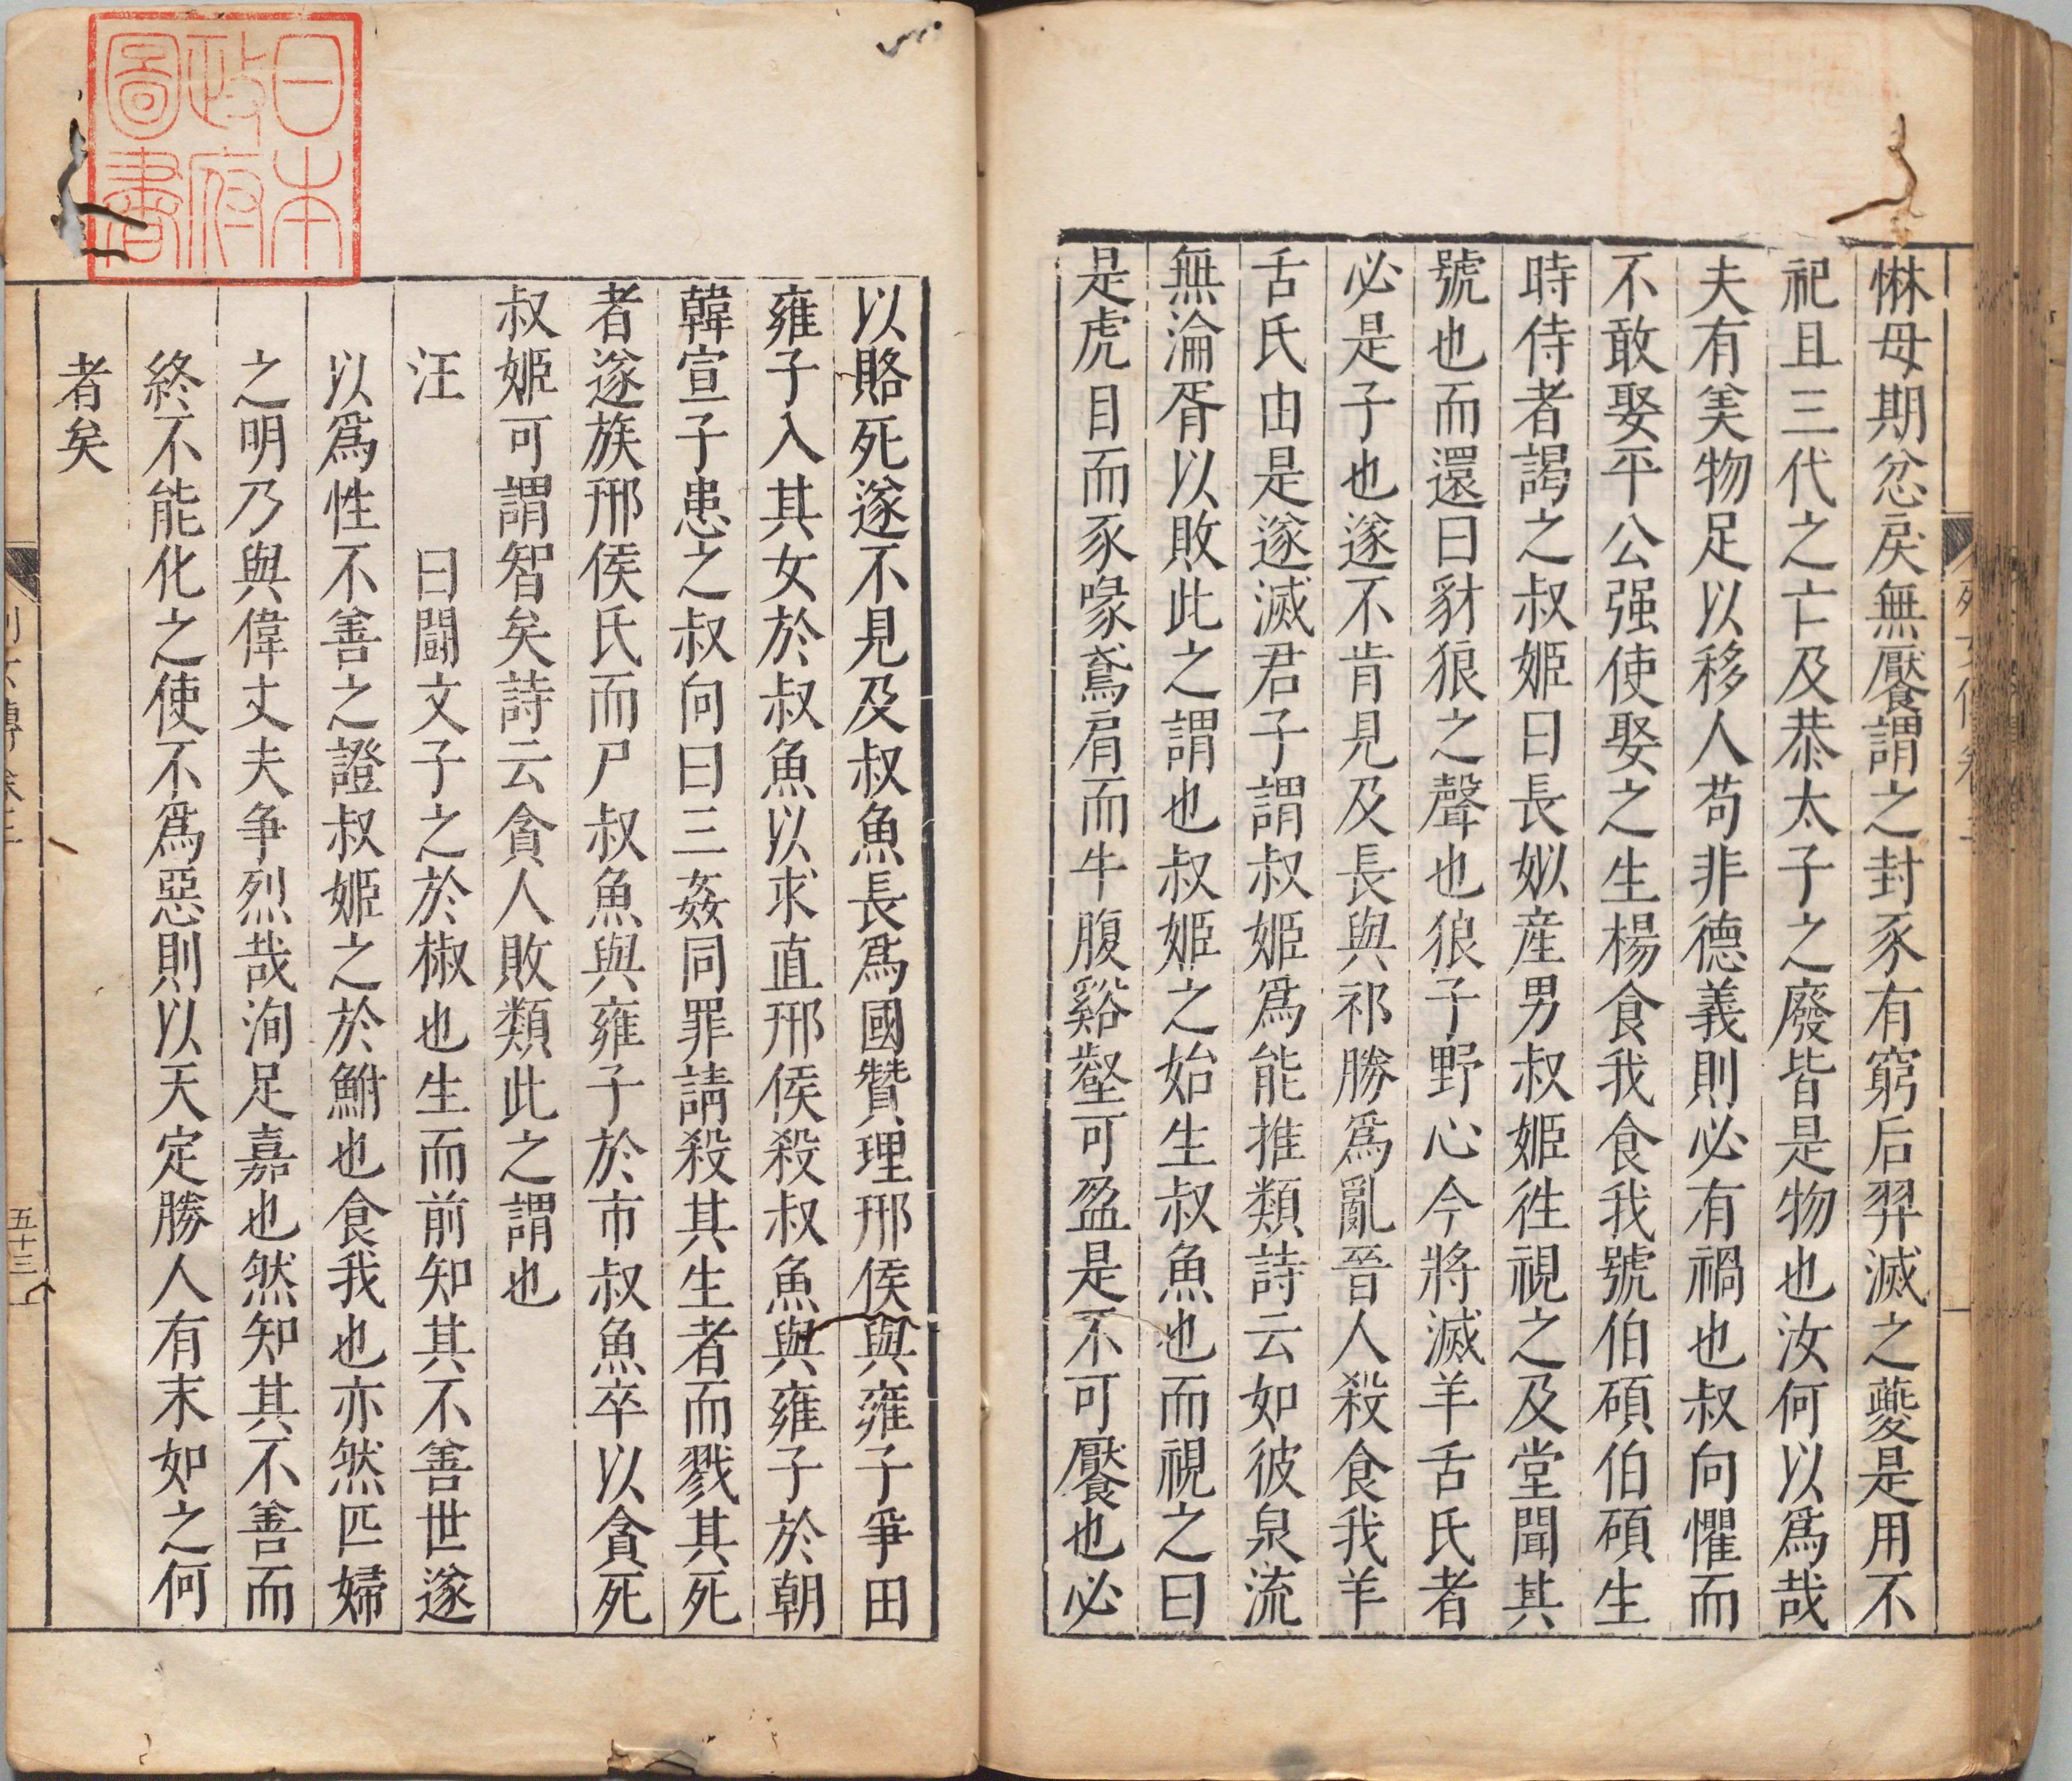 惏毋期忿戾無饜謂之封豕有窮后羿滅之夔是用不
祀且三代之亡及恭太子之廢皆是物也汝何以爲哉
夫有美物足以移人苟非德義則必有禍也叔向懼而
不敢娶平公强使娶之生楊食我食我號伯碩伯碩生
時侍者謁之叔姬曰長姒産男叔姬徃視之及堂聞其
號也而還曰豺狼之聲也狼子野心今將滅羊舌氏者
必是子也遂不肯見及長與祁勝爲亂晉人殺食我羊
舌氏由是遂滅君子謂叔姬爲能推類詩云如彼泉流
無淪胥以敗此之謂也叔姬之始生叔魚也而視之曰
是虎目而豕喙鳶肩而牛腹谿壑可盈是不可饜也必
以賂死遂不見及叔魚長爲國贊理邢侯與雍子爭田
雍子入其女於叔魚以求直邢侯殺叔魚與雍子於朝
韓宣子患之叔向曰三姦同罪請殺其生者而戮其死
者遂族邢侯氏而尸叔魚與雍子於市叔魚卒以貪死
叔姬可謂智矣詩云貪人敗類此之謂也
汪 曰鬭文子之於椒也生而前知其不善世遂
以爲性不善之證叔姬之於鮒也食我也亦然匹婦
之明乃與偉丈夫争烈哉洵足嘉也然知其不善而
終不能化之使不爲惡則以天定勝人有末如之何
者矣
五十三
日本
政府
圖書